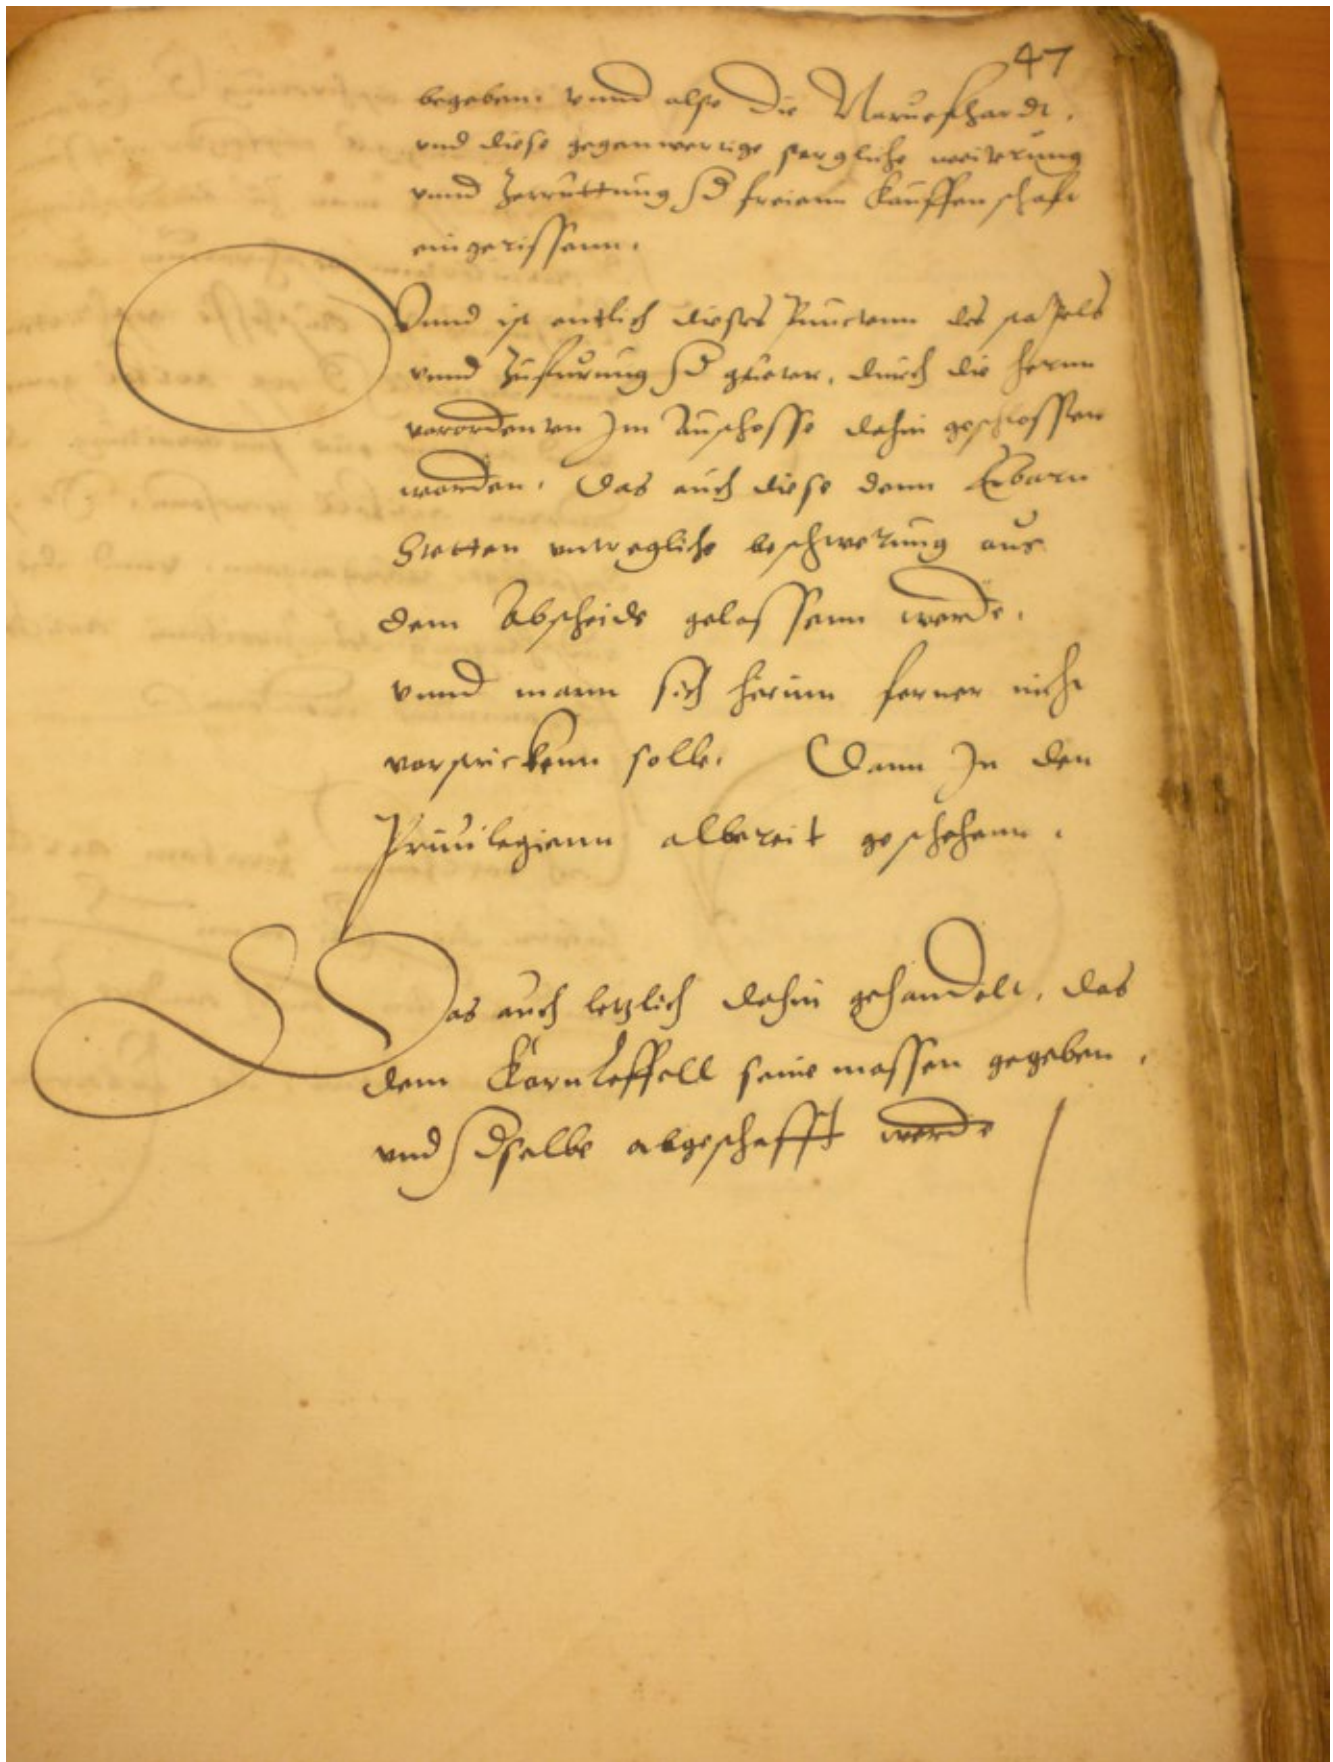 47
begeben. vnnd also die Naruefhardt,
vnd diese gegenwertige sorgliche weiterung
vnnd Zerruttung d freienn Kauffenschaft
eingerissenn.
Vnnd ist entlich dieses Puncten des stapels
vnnd Zufurung d gueter, durch die hernn
verordenten Im Auschosse dahin geschlossen
worden. Das auch diese denn Erbarn
Stetten vntregliche beschwerung aus
dem Abscheide gelassenn werde,
vnnd mann sich hierinn ferner nicht
verstrickenn solle. Dann In den
Priuilegienn albereit geschehenn.
Das auch letzlich dahin gehandelt, das
dem Kornleffell seine massen gegeben,
vnd dselbe abgeschafft werde